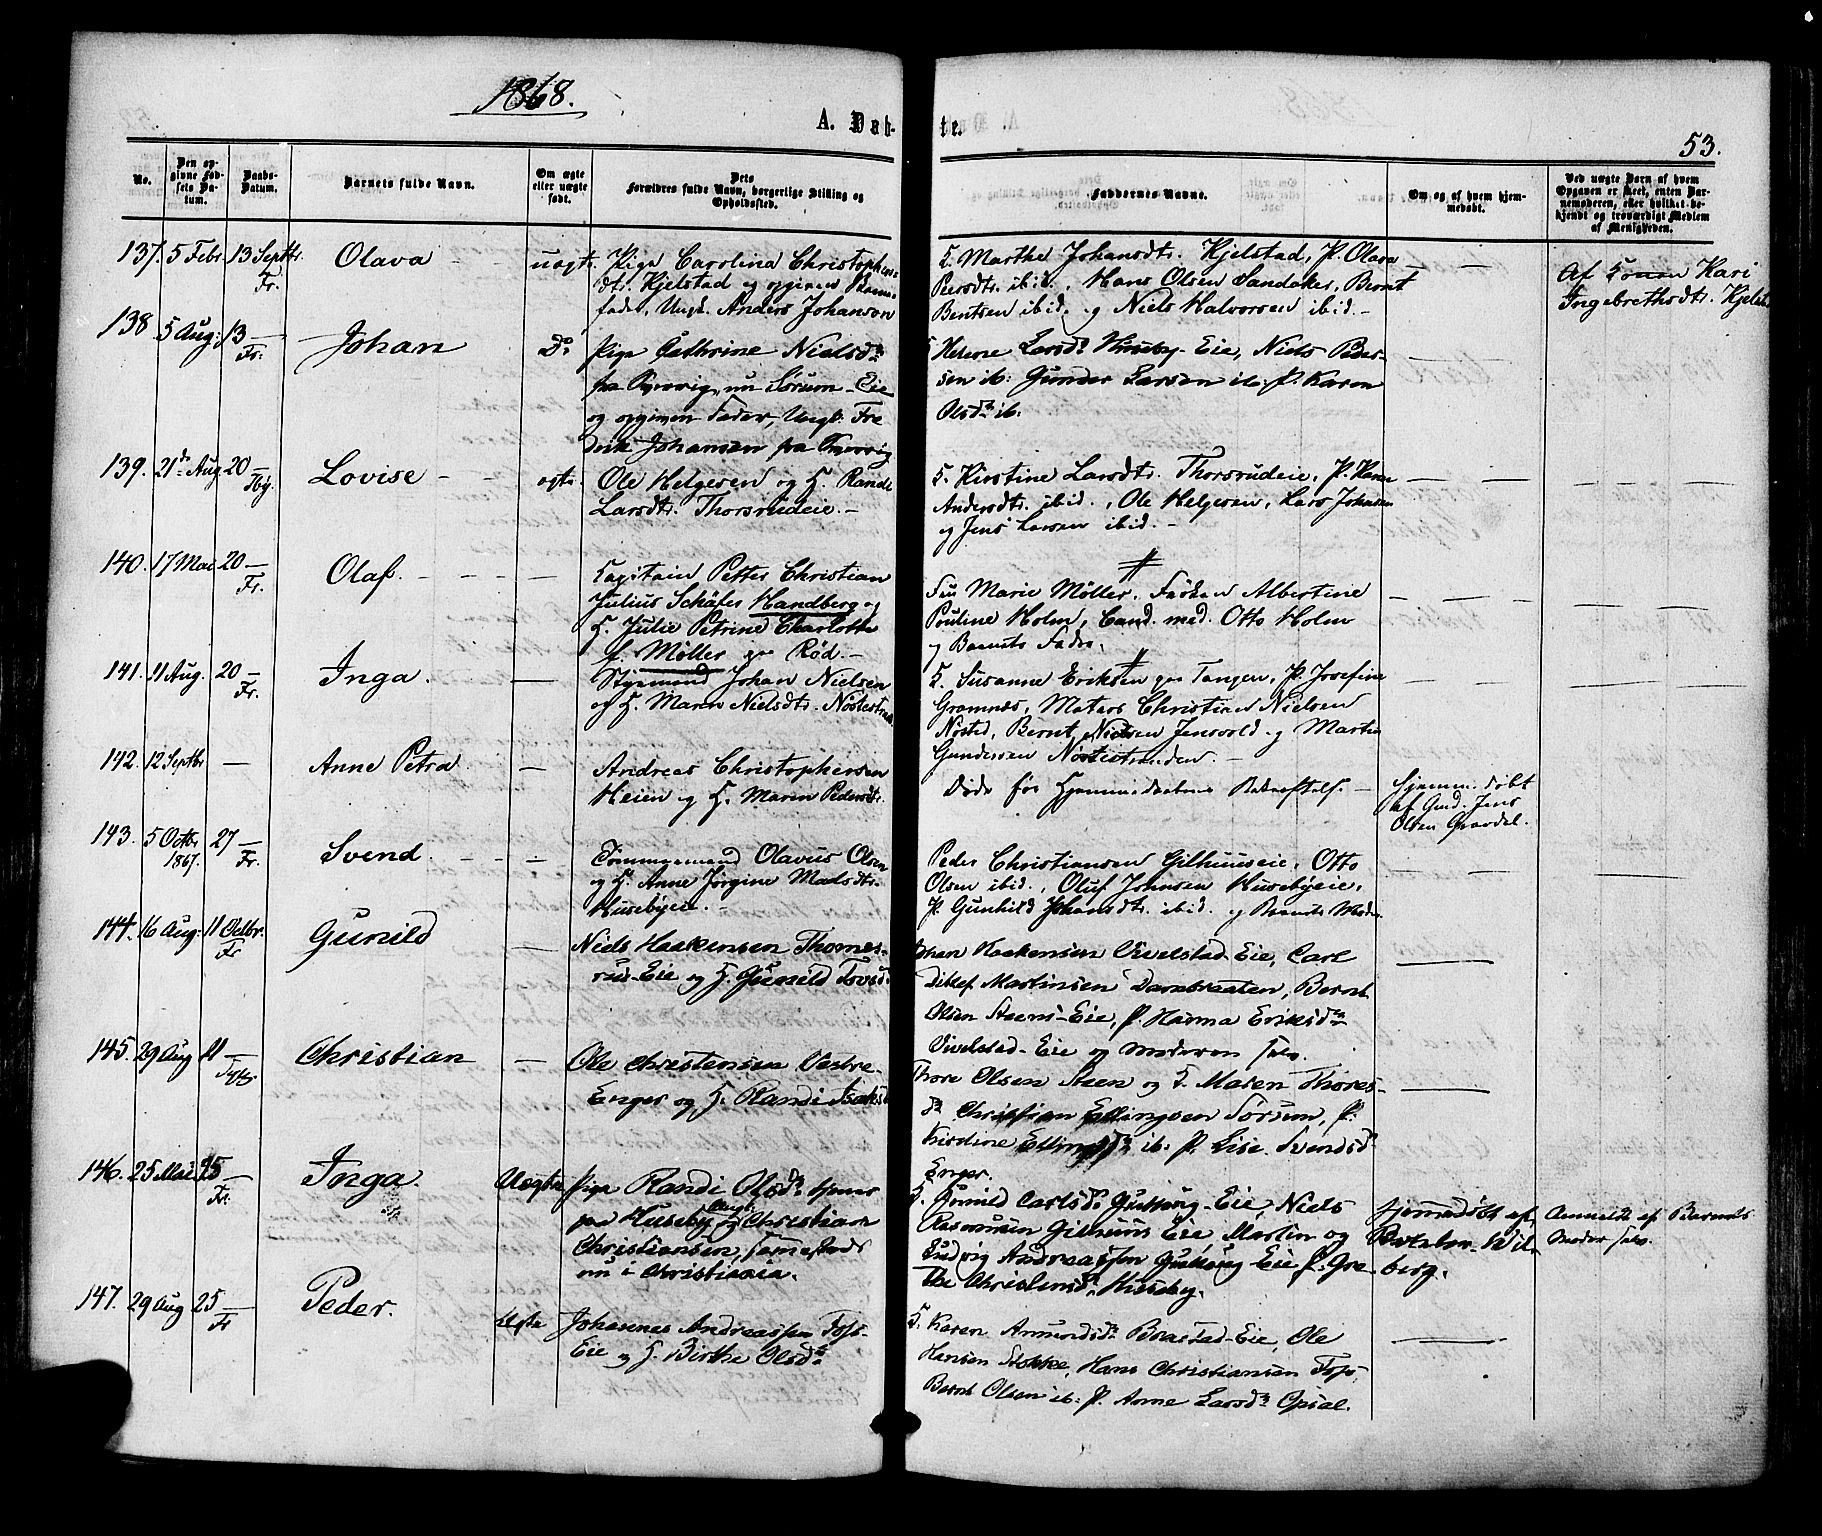 1868.
A. Døb-
te.
53.
No.
Den op-
givne Fød-
sels Da-
tum.
Daabs-
Datum.
Barnets fulde Navn.
Om ægte
eller uægte
født.
Dets
Forældres fulde Navn, borgerlige Stilling og
Opholdssted.
Faddernes Navne.
Om og af hvem hjem-
medøbt.
Ved uægte Barn af hvem
Opgaven er skeet, enten Bar-
nemoderen, eller hvilket be-
kjendt og troværdigt Medlem
af Menigheden.
137. 5 Febr. 13 Septbr. Fr. Olava uægte. Pige Carolina Christophers-
dtr. Kjelstad og opgiven Barne-
fader, Ungk. Anders Johanson
K. Marthe Johansdtr. Kjelstad, P. Olava
Peersdtr. ibid., Hans Olsen Sandaker, Bernt
Bentsen ibid. og Niels Halvorsen ibid. —
Af Konen Kari
Ingebrethsdtr. Kjelstad
138 5 Aug: 13 — Fr. Johan Do Pige Cathrine Nielsdr
fra Snarvig, nu Sørum-Eie
og opgiven Fader, Ungk. Fre
derik Johansen fra Snarvig
K Helene Larsdr Huseby-Eie, Niels Peder-
sen ib: Gunder Larsen ib: P. Karen
Olsdr ib.
139. 21de Aug 20 — Lovise ægte. Ole Helgesen og K. Randi
Larsdtr. Thorsrudeie. —
K. Kirstine Larsdtr. Thorsrudeie, P. Karen
Andersdtr. ibid., Ole Helgesen, Lars Johansen
og Jens Larsen ibid. —
140. 17 Mai 20 — Fr. Olaf. — Kapitain Petter Christian
Julius Schäfer Handberg og
K. Julie Petrine Charlotte
f. Møller paa Rød. —
Fru Marie Møller, Frøken Albertine
Pouline Holm, Cand. med. Otto Holm
og Barnets Fader.
141. 11 Aug. 20 — Fr. Inga. — Styrmand Johan Nielsen
og K. Maren Nielsdtr. Nøstestrand
K. Susanne Eriksen paa Tangen, P. Josefine
Gramnæs, Matros Christian Nielsen
Nøsted, Bernt Nielsen Jensvold og Martin
Gundersen Nøstestranden. —
142. 12 Septbr — Anne Petra. — Andreas Christophersen
Heien og K. Maren Pedersdtr.
Døde før Hjemmedaabens Bekræftelse. —
Hjemmedøbt
af Grd. Jens
Olsen Gravdal.
143. 5 Octbr 1867. 27 — Fr. Svend. — Tømmermand Olavus Olsen
og K. Anne Jørgine Madsdtr.
Husebyeie. —
Peder Christiansen Gilhuuseie, Otto
Olsen ibid., Oluf Johnsen Husebyeie,
P. Gunhild Johansdtr. ibid. og Barnets Moder
144. 16 Aug: 11 Octbr. Fr Gunild — Niels Haakensen Thomes-
rud-Eie og K. Gunild Tovsdr
Johan Haakensen Vivelstad-Eie, Carl
Ditlef Martinsen Dambraaten, Bernt
Olsen Steens-Eie, P. Hanna Eriksdr
Vivelstad-Eie og Moderen selv.
145. 29 Aug 11 — Christian — Ole Christensen Vestre-
Enger og K. Randi Isaksdr
Thore Olsen Steen og K. Maren Thores-
dr Christian Ellingsen Sørum, P.
Kirstine Ellingsdr ib: P. Lise Svendsdr
Enger.
146. 25 Mai 25 — Fr. Inga. Uægte Pige Randi Olsdr tjener
paa Huseby og Ungk. Christian
Christiansen, sammesteds
nu i Christiania.
K. Gunild Carlsdr Gukkoug-Eie, Niels
Rasmusen Gilhuus Eie Martin og
Ludvig Andreassen Gukkoug-Eie P. Gre-
the Christensdr Huseby.
Hjemmedøbt af
Wil-
berg.
Anmeldt af Barnets
Moder selv.
147. 29 Aug 25 — Fr Peder. Ægte Johannes Andreassen Foss-
Eie og K. Birthe Olsdr
K. Karen Amundsdr Braastad-Eie, Ole
Hansen Stokke, Hans Christiansen Foss,
Bernt Olsen ib: P. Anne Larsdr Opsal.